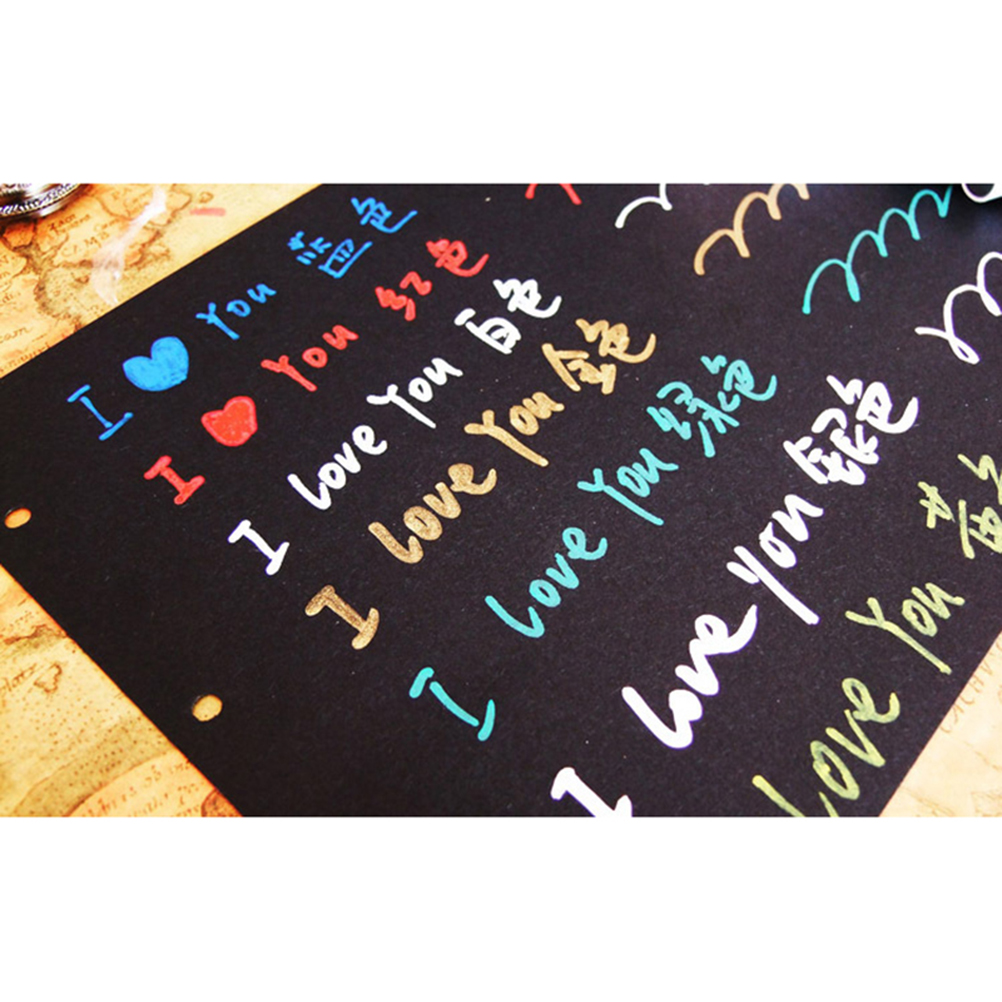 I ♥ You 蓝色
I ♥ You 红色
I Love You 白色
I Love You 金色
I Love You 绿色
I Love You 银色
Love You 黄